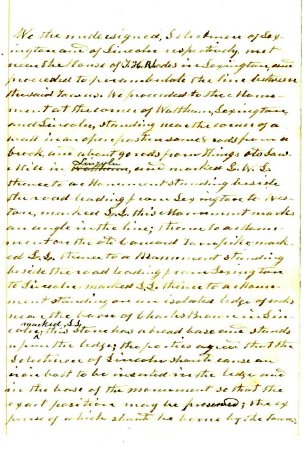 We the undersigned, Selectmen of Lex-
ington and of Lincoln respectively, met
near the House of F. H. Rhodes in Lexington, and
proceeded to perambulate the line between
the said towns. We proceeded to the Monu-
ment at the corner of Waltham, Lexington,
and Lincoln, standing near the corner of a
wall in an open pasture some rods from a
brook and about 90 rods from Saw
Mill in Waltham, and marked L. W. L.
Lincoln
thence to a Monument standing beside
the road leading from Lexington to Wes-
ton, marked L. L. this Monument marks
an angle in the line; thence to a Monu-
ment on the Turnpike mark-
ed L. L. thence to a Monument standing
beside the road leading from Lexington
to Lincoln marked L. L. thence to a Monu-
ment standing on an isolated ledge of rocks
near the barn of Charles Brown in Lin-
marked L. L.
coln; this stone has a broad base and stands
upon the ledge; the parties agreed that the
Selectmen of Lincoln should cause an
iron bolt to be inserted in the ledge and
in the base of the monument so that the
exact position may be preserved; the ex-
pense of which should be borne by the towns